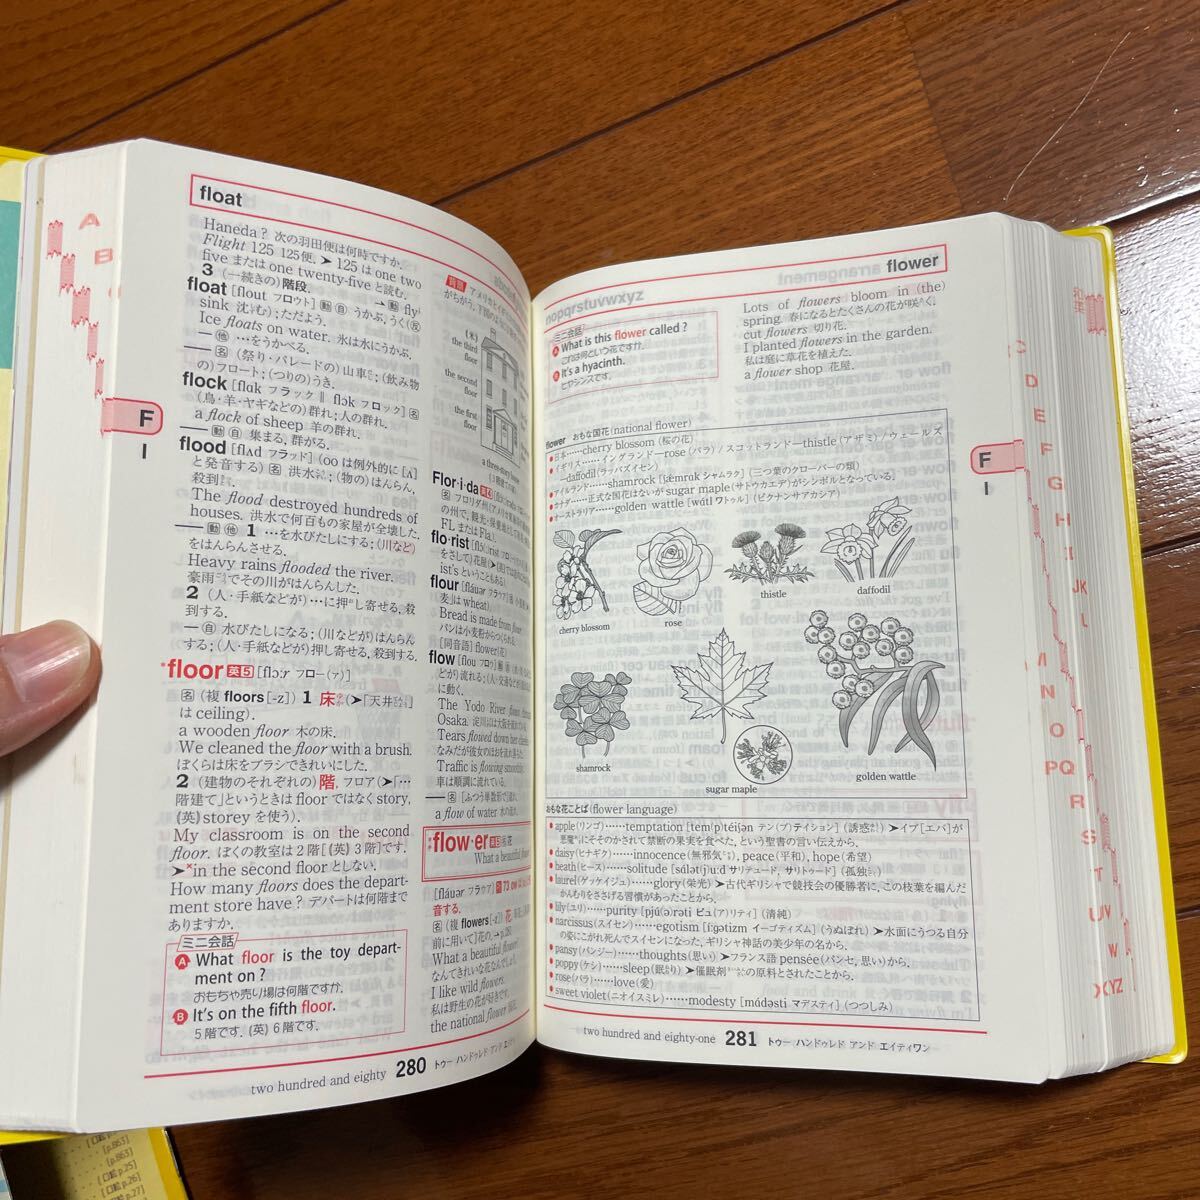 float
Haneda? 次の羽田便は何時ですか.
Flight 125 125便. ➤ 125 は one two
five または one twenty-five と読む.
3 (一続きの) 階段.
float [flout フロウト] 動 自 うかぶ, うく(反
sink 沈む); ただよう.
Ice floats on water. 氷は水にうかぶ.
— 他 …をうかべる.
— 名 (祭り・パレードの) 山車; (飲み物
の) フロート; (つりの) うき.
flock [flɑk フラック ‖ flɔk フロック] 名
(鳥・羊・ヤギなどの) 群れ; 人の群れ.
a flock of sheep 羊の群れ.
— 動 自 集まる, 群がる.
flood [flʌd フラッド] (oo は例外的に [ʌ]
と発音する) 名 洪水; (物の) はんらん,
殺到.
The flood destroyed hundreds of
houses. 洪水で何百もの家屋が全壊した.
— 動 他 1 …を水びたしにする; (川など)
をはんらんさせる.
Heavy rains flooded the river.
豪雨でその川がはんらんした.
2 (人・手紙などが) …に押し寄せる, 殺
到する.
— 自 水びたしになる; (川などが) はんらん
する; (人・手紙などが) 押し寄せる, 殺到する.
*floor 英5 [flɔːr フロー(ァ)]
名 (複 floors [-z]) 1 床 (➤「天井」
は ceiling).
a wooden floor 木の床.
We cleaned the floor with a brush.
ぼくらは床をブラシできれいにした.
2 (建物のそれぞれの) 階, フロア (➤「…
階建て」というときは floor ではなく story,
(英) storey を使う).
My classroom is on the second
floor. ぼくの教室は2階 [(英) 3階] です.
➤ ×in the second floor としない.
How many floors does the depart-
ment store have? デパートは何階まで
ありますか.
ミニ会話
A What floor is the toy depart-
ment on?
おもちゃ売り場は何階ですか.
B It's on the fifth floor.
5階です. (英) 6階です.
two hundred and eighty 280 トゥー ハンドゥレド アンド エイティ
(米)
the third
floor
the second
floor
the first
floor
a three-story house
Flor·i·da
名 フロリダ州
の州で, 観光・保養地
FL または Fla.).
flo·rist
ist's ということもある)
flour [fláuər フラウア] 名
麦」は wheat).
Bread is made from flour.
パンは小麦粉からつくられる.
[同音語] flower (花)
flow [flou フロウ] 動 自
どが) 流れる;
に動く.
The Yodo River flows
Osaka. 淀川は大阪
Tears flowed down her cheeks.
なみだが彼女のほおを流れ落ちた.
Traffic is flowing smoothly.
車は順調に流れている.
— 名 [ふつう単数形で] 流れ.
a flow of water 水の流れ.
*flow·er 英5 名 花
What a beautiful flower
[fláuər フラウア]
音する.
名 (複 flowers [-z]) 花
What a beautiful flower
なんてきれいな花なんでしょう.
I like wild flowers.
私は野生の花が好きです.
the national flower
F
I
A
B
nopqrstuvwxyz
flower
ミニ会話
A What is this flower called?
これは何という花ですか.
B It's a hyacinth.
ヒヤシンスです.
Lots of flowers bloom in (the)
spring. 春になるとたくさんの花が咲く.
cut flowers 切り花.
I planted flowers in the garden.
私は庭に草花を植えた.
a flower shop 花屋.
flower おもな国花 (national flower)
● 日本……cherry blossom (桜の花)
● イギリス……イングランド—rose (バラ) / スコットランド—thistle (アザミ) / ウェールズ
—daffodil (ラッパズイセン)
● アイルランド……shamrock [ʃǽmrɑk シャムラク] (三つ葉のクローバーの類)
● カナダ……正式な国花はないが sugar maple (サトウカエデ) がシンボルとなっている.
● オーストラリア……golden wattle [wɑ́tl ワトゥル] (ピクナンサアカシア)
cherry blossom
rose
thistle
daffodil
shamrock
sugar maple
golden wattle
おもな花ことば (flower language)
● apple (リンゴ)……temptation [tem(p)téiʃən テン(プ)テイション] (誘惑) ➤ イブ [エバ] が
悪魔にそそのかされて禁断の果実を食べた, という聖書の言い伝えから.
● daisy (ヒナギク)……innocence (無邪気), peace (平和), hope (希望)
● heath (ヒース)……solitude [sɑ́lət(j)uːd サリテュード, サリトゥード] (孤独)
● laurel (ゲッケイジュ)……glory (栄光) ➤ 古代ギリシャで競技会の優勝者に, この枝葉を編んだ
かんむりをささげる習慣があったことから.
● lily (ユリ)……purity [pjú(ə)rəti ピュ(ア)リティ] (清純)
● narcissus (スイセン)……egotism [íːgətizm イーゴティズム] (うぬぼれ) ➤ 水面にうつる自分
の姿にこがれ死んでスイセンになった, ギリシャ神話の美少年の名から.
● pansy (パンジー)……thoughts (思い) ➤ フランス語 pensée (パンセ, 思い) から.
● poppy (ケシ)……sleep (眠り) ➤ 催眠剤の原料とされたことから.
● rose (バラ)……love (愛)
● sweet violet (ニオイスミレ)……modesty [mɑ́dəsti マデスティ] (つつしみ)
two hundred and eighty-one 281 トゥー ハンドゥレド アンド エイティワン
F
I
C
D
E
F
G
H
I
JK
L
M
N
O
PQ
R
S
T
UV
W
XYZ
[p.863]
[p.863]
[口絵p.25]
[口絵p.26]
[口絵p.27]